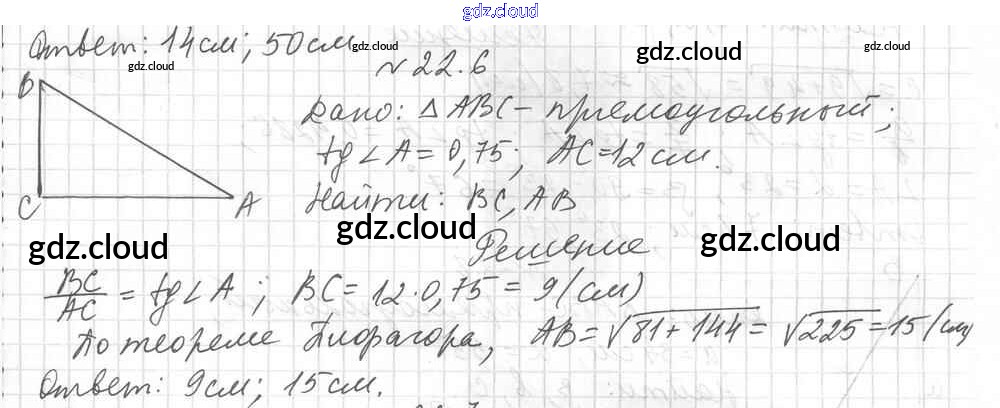 gdz.cloud
Ответ: 14 см; 50 см gdz.cloud gdz.cloud
gdz.cloud № 22.6
B
Дано: △ ABC – прямоугольный;
tg ∠ A = 0,75; AC = 12 см.
C A Найти: BC, AB
gdz.cloud gdz.cloud gdz.cloud
Решение
BC/AC = tg ∠ A; BC = 12 · 0,75 = 9 (см)
По теореме Пифагора, AB = √81 + 144 = √225 = 15 (см)
Ответ: 9 см; 15 см.